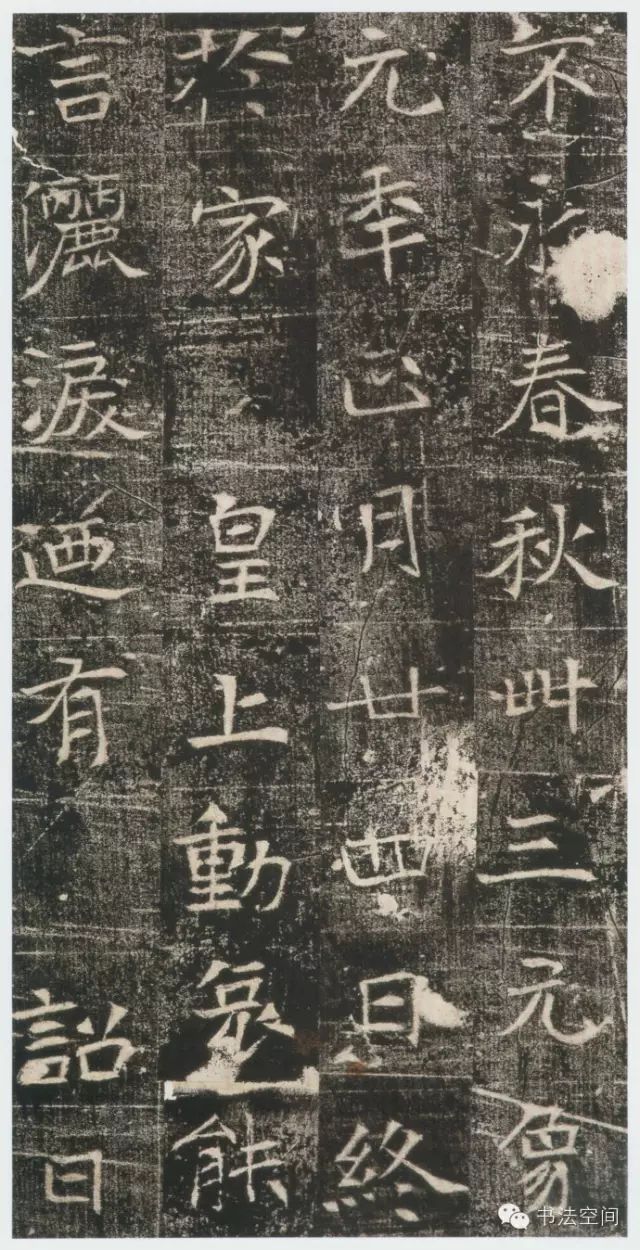 不永春秋卌三元象
元年正月廿四日終
於家 皇上動哀能
言灑淚迺有 詔曰
书法空间